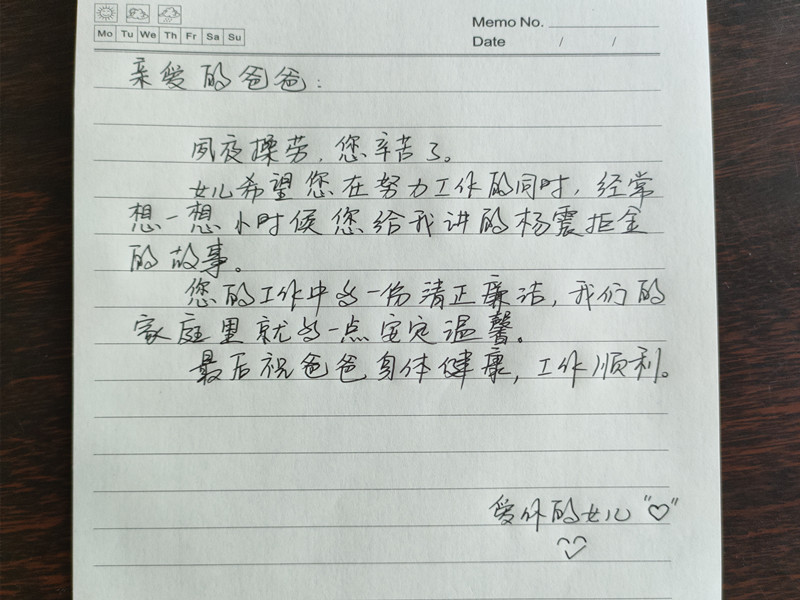 Mo Tu We Th Fr Sa Su
Memo No.
Date / /
亲爱的爸爸：
夙夜操劳，您辛苦了。
女儿希望您在努力工作的同时，经常
想一想小时候您给我讲的杨震拒金
的故事。
您的工作中多一份清正廉洁，我们的
家庭里就多一点安定温馨。
最后祝爸爸身体健康，工作顺利。
爱你的女儿“♡”